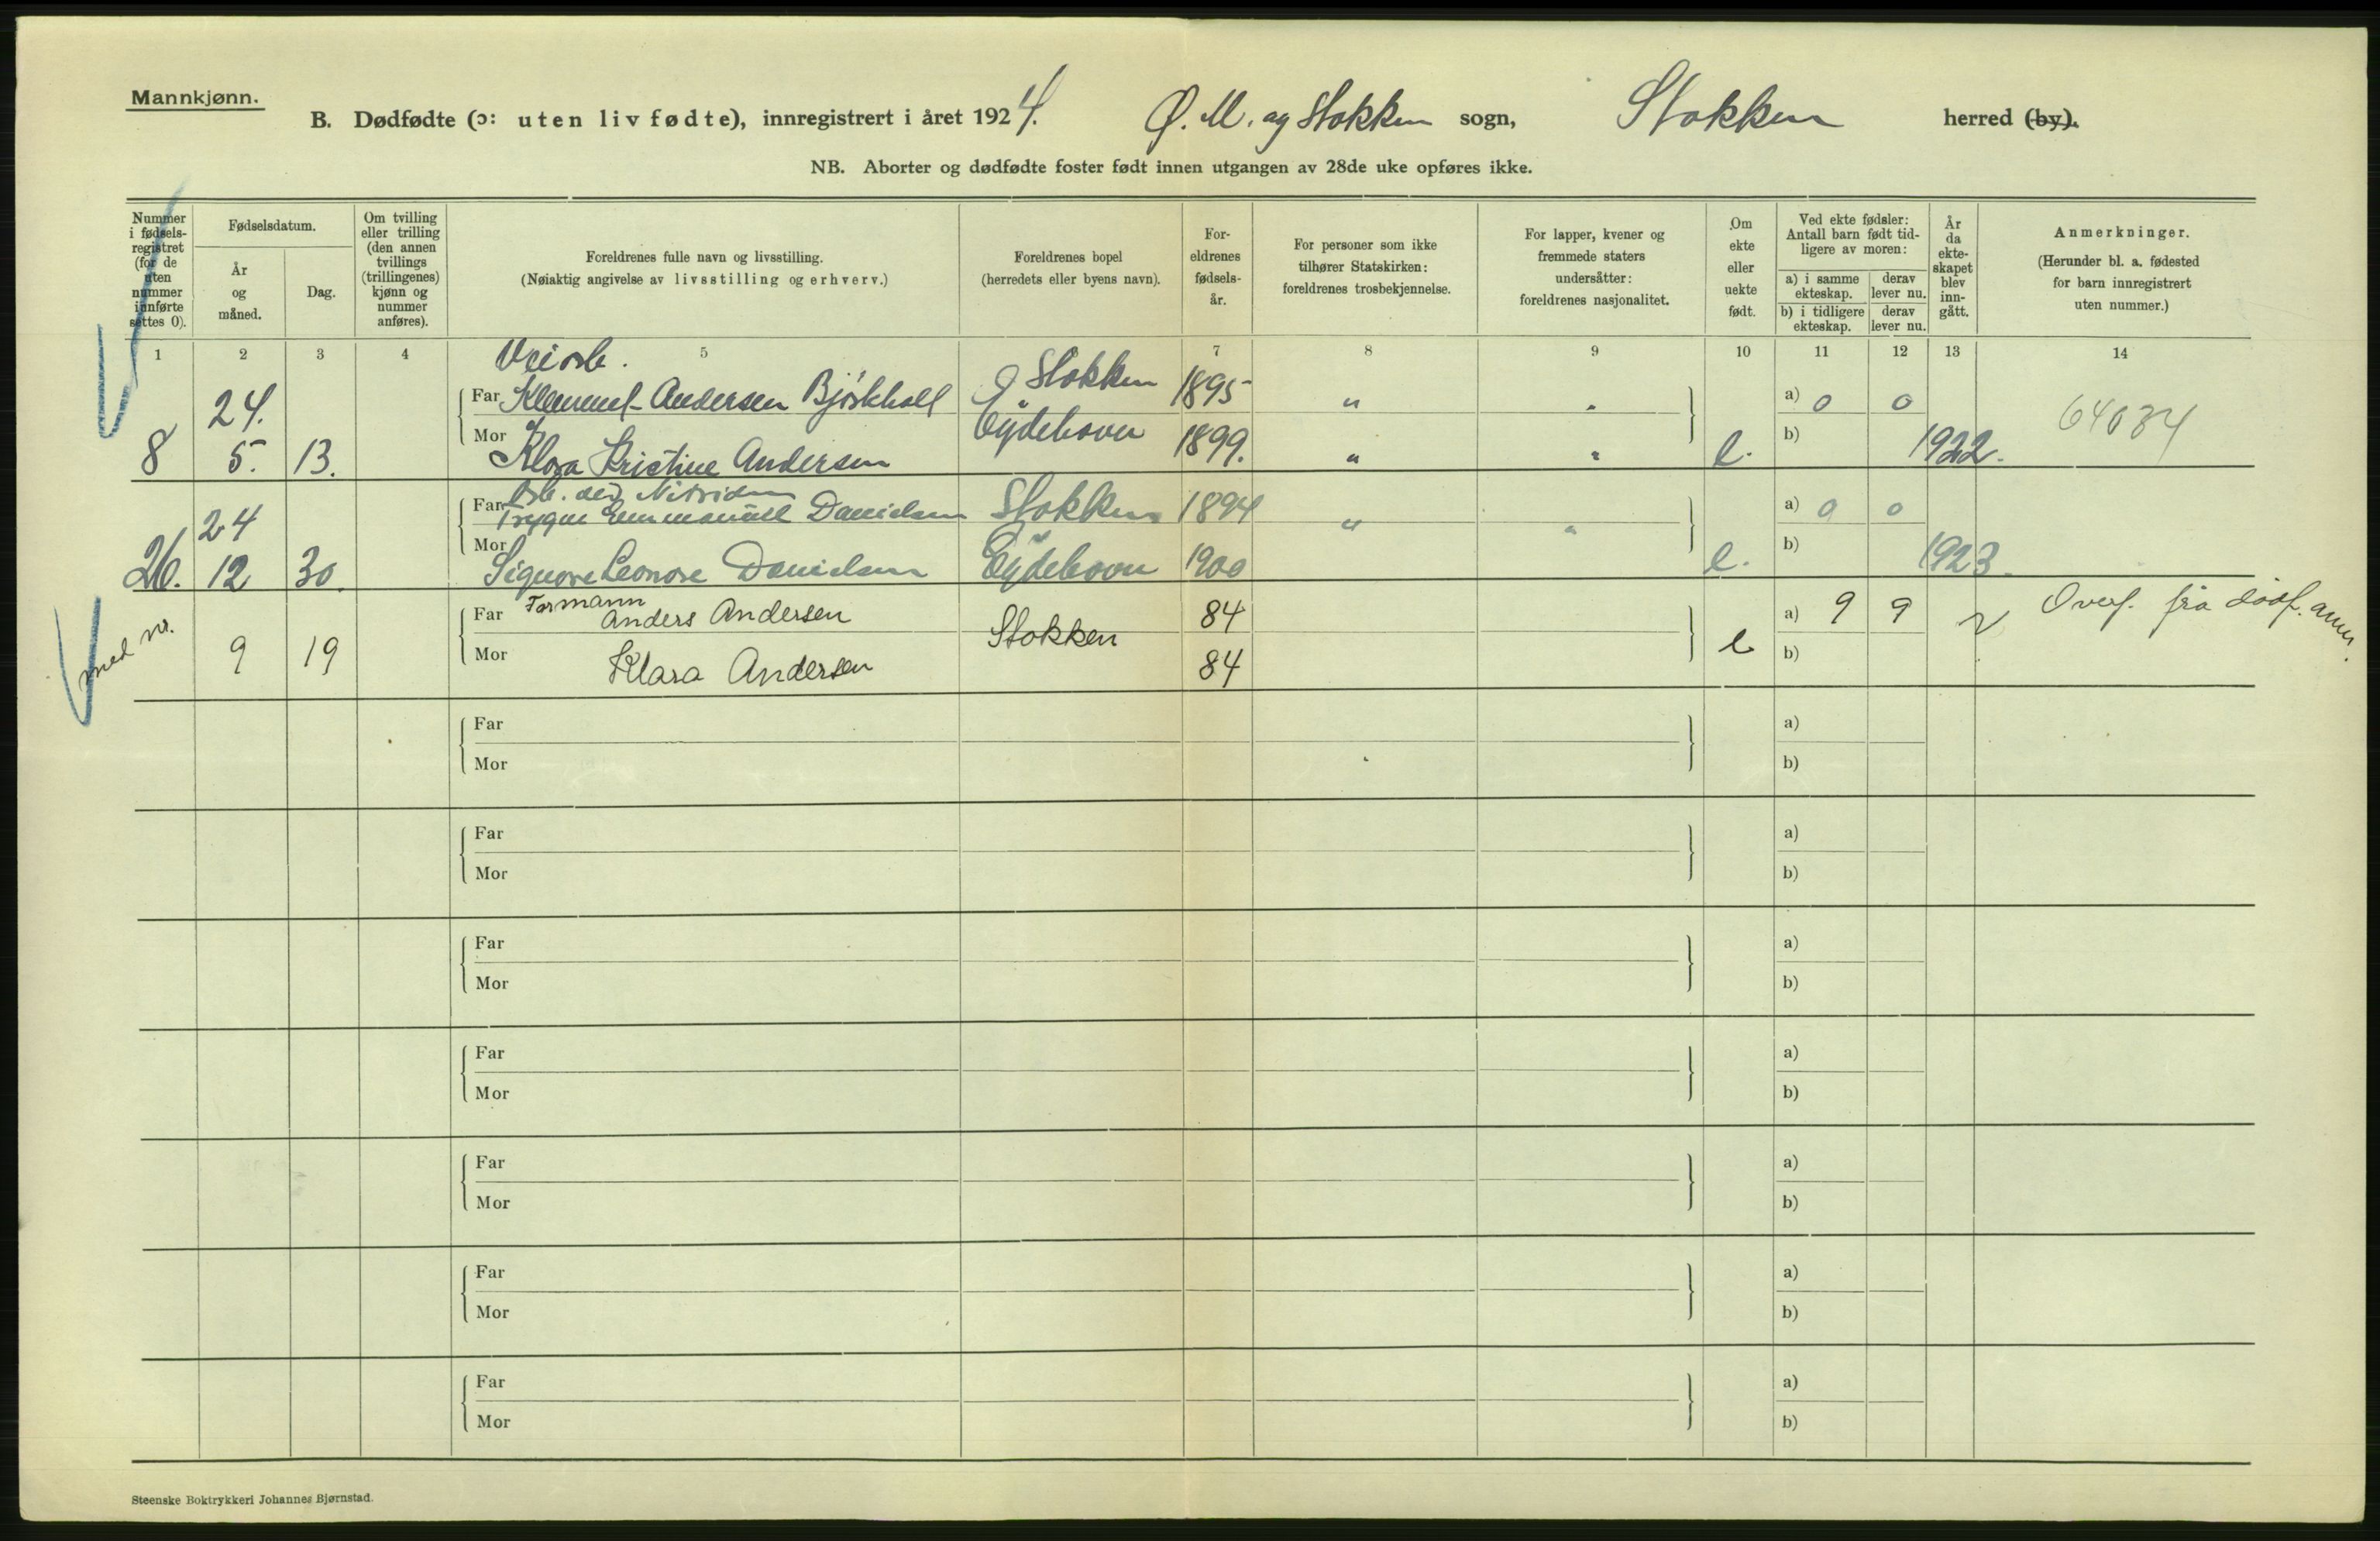 Mannkjønn.
B. Dødfødte (ɔ: uten liv fødte), innregistrert i året 1924. Ø. M. og Stokken sogn, Stokken herred (by).
NB. Aborter og dødfødte foster født innen utgangen av 28de uke opføres ikke.
Nummer
i fødsels-
registret
(for de
uten
nummer
innførte
settes 0).
Fødselsdatum.
År
og
måned.
Dag.
Om tvilling
eller trilling
(den annen
tvillings
(trillingenes)
kjønn og
nummer
anføres).
Foreldrenes fulle navn og livsstilling.
(Nøiaktig angivelse av livsstilling og erhverv.)
Foreldrenes bopel
(herredets eller byens navn).
For-
eldrenes
fødsels-
år.
For personer som ikke
tilhører Statskirken:
foreldrenes trosbekjennelse.
For lapper, kvener og
fremmede staters
undersåtter:
foreldrenes nasjonalitet.
Om
ekte
eller
uekte
født.
Ved ekte fødsler:
Antall barn født tid-
ligere av moren:
a) i samme
ekteskap.
derav
lever nu.
b) i tidligere
ekteskap.
derav
lever nu.
År
da
ekte-
skapet
blev
inn-
gått.
Anmerkninger.
(Herunder bl. a. fødested
for barn innregistrert
uten nummer.)
1 2 3 4 5 7 8 9 10 11 12 13 14
Veiarb.
Far Klemmet Andersen Bjørkholl Stokken 1895 " " a) 0 0
24.
Mor Eydehavn 1899. b) 64084
8 5. 13. Klara Kristine Andersen " " e. 1922.
Arb. ved Nitriden
Far Trygve Emmanuel Danielsen Stokken 1894 " " a) 0 0
24
Mor b)
26. 12 30. Signore Leonore Danielsen Eydehavn 1900 e. 1923.
Formann
Far Anders Andersen 84 a) 9 9 Overf. fra dødf. anm.
med nr. 9 19 Stokken e
Mor Klara Andersen 84 b)
Far a)
Mor b)
Far a)
Mor b)
Far a)
Mor b)
Far a)
Mor b)
Far a)
Mor b)
Far a)
Mor b)
Far a)
Mor b)
Steenske Boktrykkeri Johannes Bjørnstad.